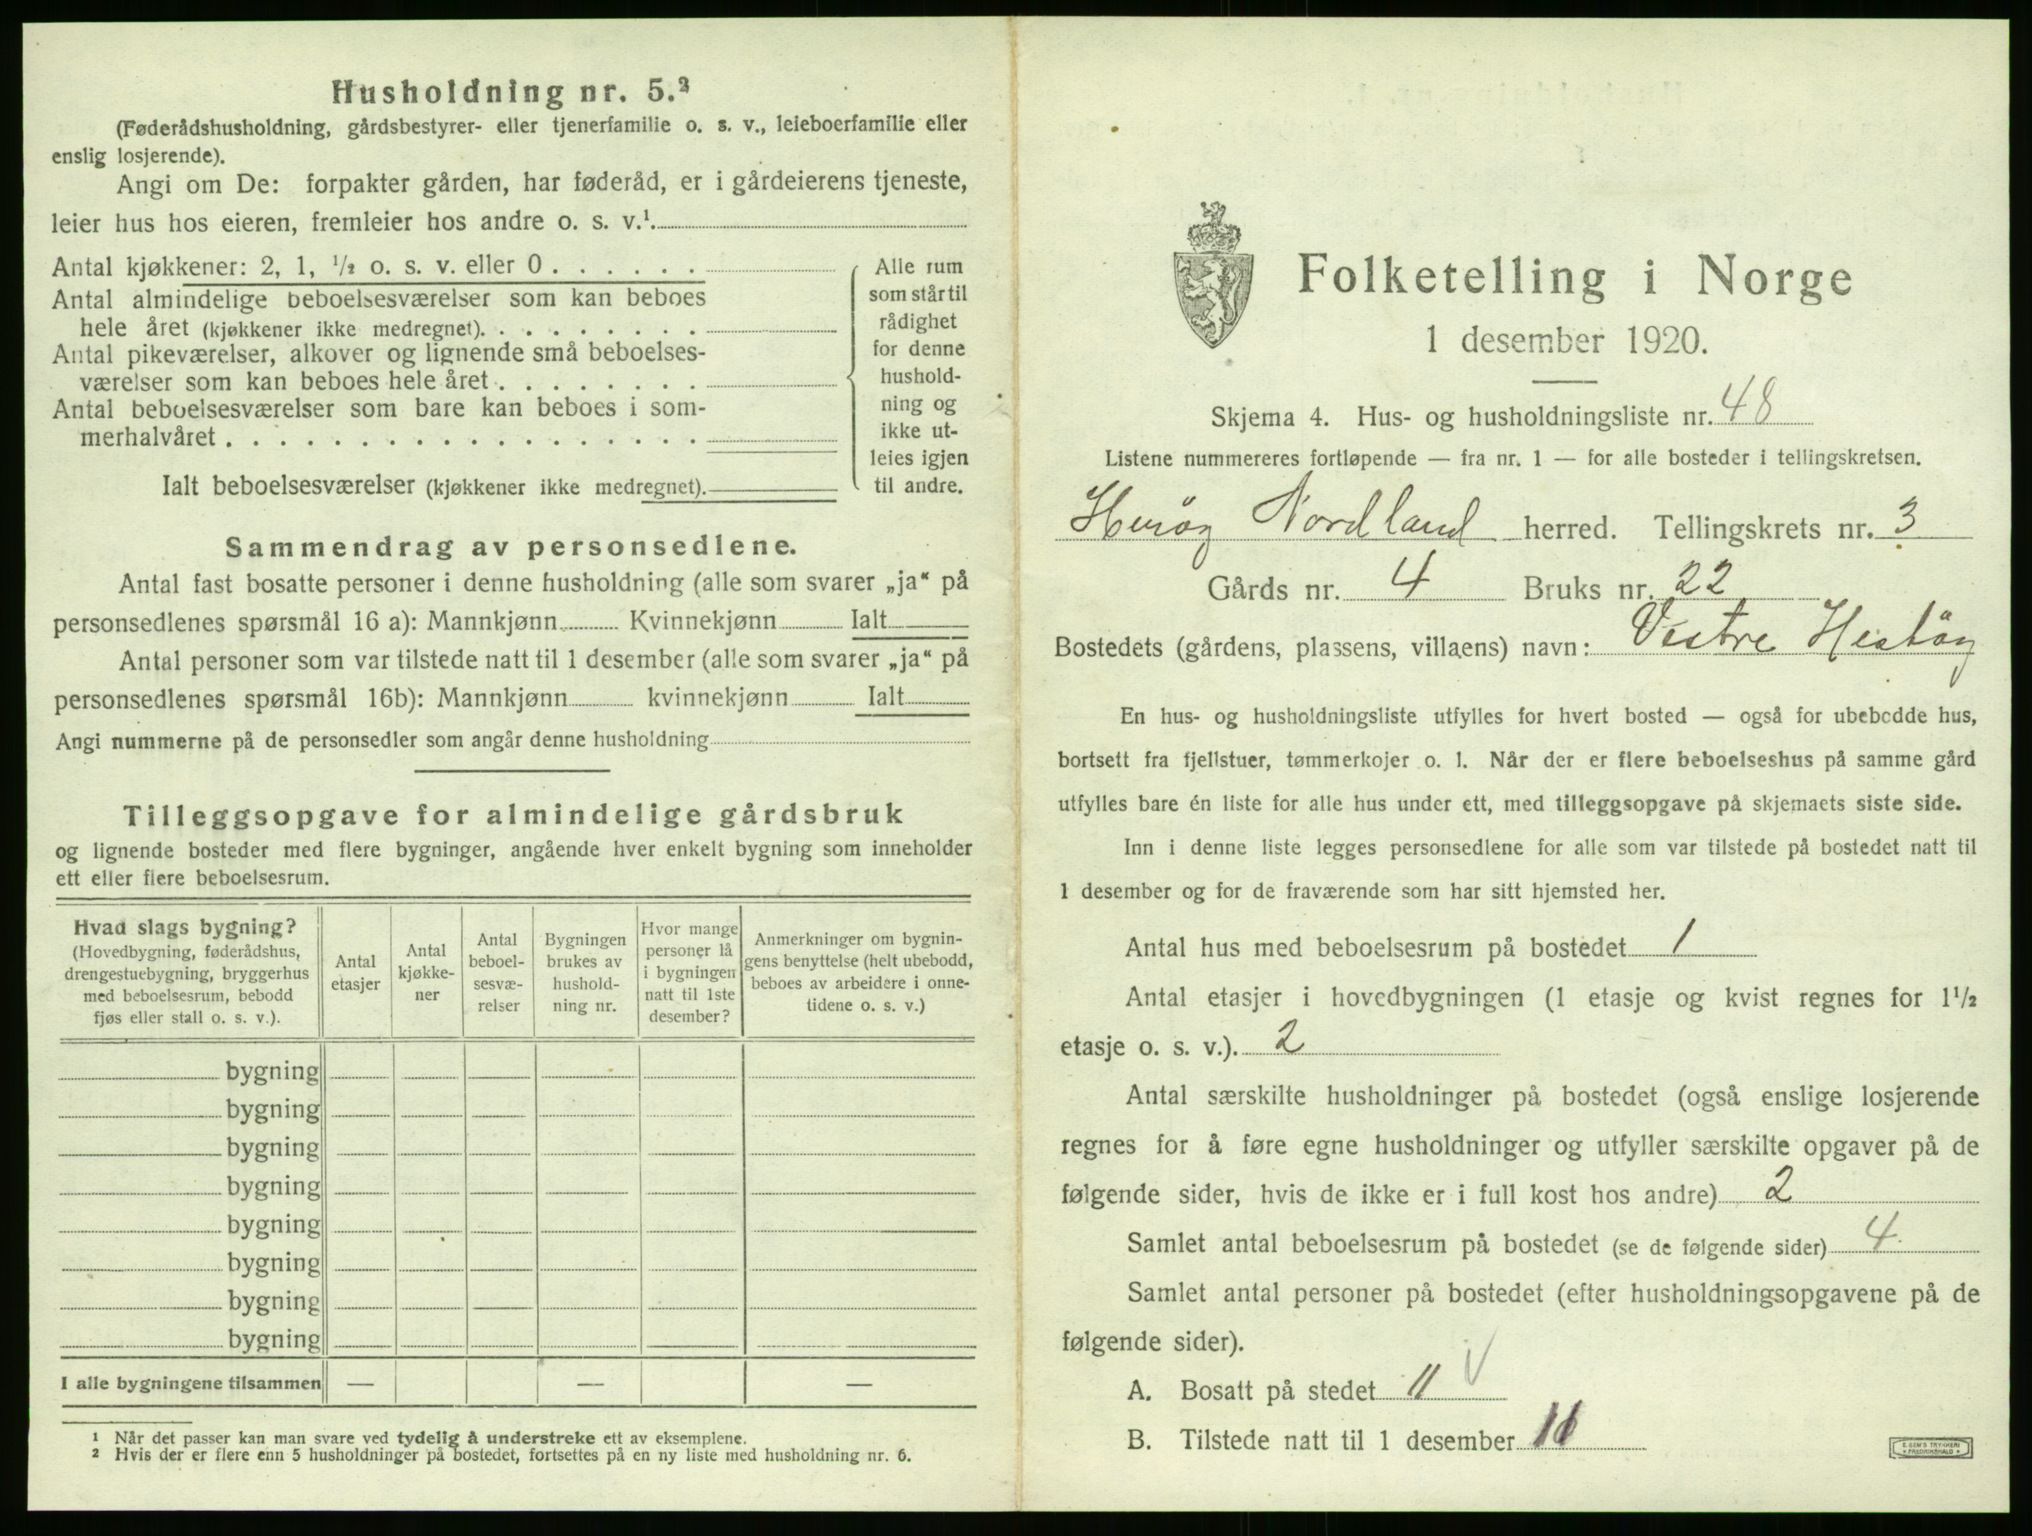 Husholdning nr. 5.²
(Føderådshusholdning, gårdsbestyrer- eller tjenerfamilie o. s. v., leieboerfamilie eller
enslig losjerende).
Angi om De: forpakter gården, har føderåd, er i gårdeierens tjeneste,
leier hus hos eieren, fremleier hos andre o. s. v.¹.
Antal kjøkkener: 2, 1, ½ o. s. v. eller 0 . . . . . .
Antal almindelige beboelsesværelser som kan beboes
hele året (kjøkkener ikke medregnet). . . . . . . . .
Antal pikeværelser, alkover og lignende små beboelses-
værelser som kan beboes hele året . . . . . . . .
Antal beboelsesværelser som bare kan beboes i som-
merhalvåret . . . . . . . . . . . . . . . . . .
Ialt beboelsesværelser (kjøkkener ikke medregnet).
Alle rum
som står til
rådighet
for denne
hushold-
ning og
ikke ut-
leies igjen
til andre.
Sammendrag av personsedlene.
Antal fast bosatte personer i denne husholdning (alle som svarer „ja“ på
personsedlenes spørsmål 16 a): Mannkjønn Kvinnekjønn Ialt
Antal personer som var tilstede natt til 1 desember (alle som svarer „ja“ på
personsedlenes spørsmål 16b): Mannkjønn kvinnekjønn Ialt
Angi nummerne på de personsedler som angår denne husholdning
Tilleggsopgave for almindelige gårdsbruk
og lignende bosteder med flere bygninger, angående hver enkelt bygning som inneholder
ett eller flere beboelsesrum.
Hvad slags bygning?
(Hovedbygning, føderådshus,
drengestuebygning, bryggerhus
med beboelsesrum, bebodd
fjøs eller stall o. s. v.).
Antal
etasjer
Antal
kjøkke-
ner
Antal
beboel-
sesvæ-
relser
Bygningen
brukes av
hushold-
ning nr.
Hvor mange
personer lå
i bygningen
natt til 1ste
desember?
Anmerkninger om bygnin-
gens benyttelse (helt ubebodd,
beboes av arbeidere i onne-
tidene o. s. v.)
bygning
bygning
bygning
bygning
bygning
bygning
bygning
bygning
I alle bygningene tilsammen — — —
¹ Når det passer kan man svare ved tydelig å understreke ett av eksemplene.
² Hvis der er flere enn 5 husholdninger på bostedet, fortsettes på en ny liste med husholdning nr. 6.
Folketelling i Norge
1 desember 1920.
Skjema 4. Hus- og husholdningsliste nr. 48
Listene nummereres fortløpende — fra nr. 1 — for alle bosteder i tellingskretsen.
Heröy Nordland herred. Tellingskrets nr. 3
Gårds nr. 4 Bruks nr. 22
Bostedets (gårdens, plassens, villaens) navn: Vestre Hestöy
En hus- og husholdningsliste utfylles for hvert bosted — også for ubebodde hus,
bortsett fra fjellstuer, tømmerkojer o. l. Når der er flere beboelseshus på samme gård
utfylles bare én liste for alle hus under ett, med tilleggsopgave på skjemaets siste side.
Inn i denne liste legges personsedlene for alle som var tilstede på bostedet natt til
1 desember og for de fraværende som har sitt hjemsted her.
Antal hus med beboelsesrum på bostedet 1
Antal etasjer i hovedbygningen (1 etasje og kvist regnes for 1½
etasje o. s. v.). 2
Antal særskilte husholdninger på bostedet (også enslige losjerende
regnes for å føre egne husholdninger og utfyller særskilte opgaver på de
følgende sider, hvis de ikke er i full kost hos andre) 2
Samlet antal beboelsesrum på bostedet (se de følgende sider) 4
Samlet antal personer på bostedet (efter husholdningsopgavene på de
følgende sider).
A. Bosatt på stedet 11
B. Tilstede natt til 1 desember
E. SEM'S TRYKKERI
FREDRIKSHALD